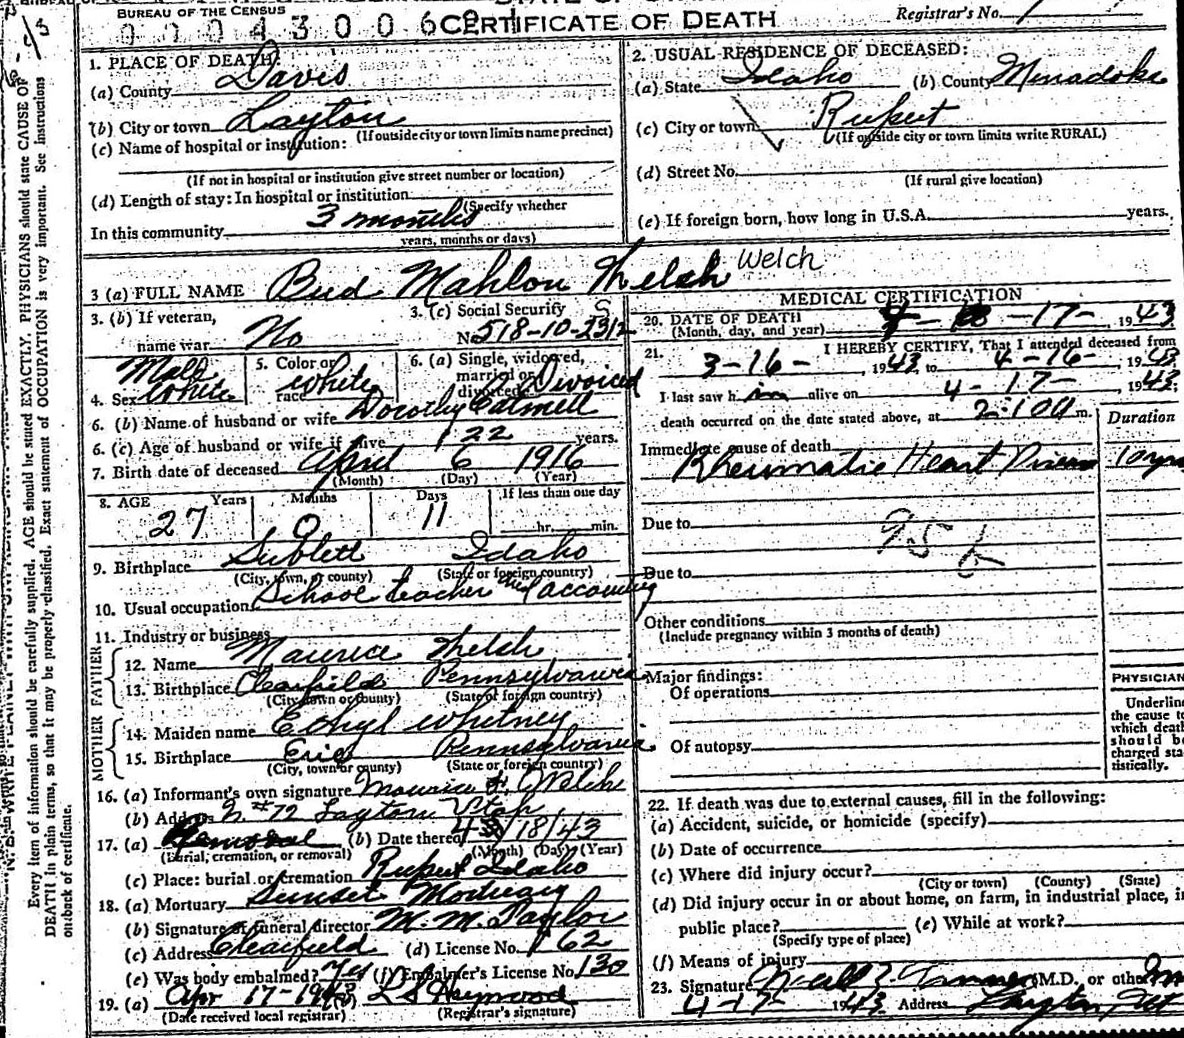 BUREAU OF THE CENSUS
CERTIFICATE OF DEATH
Registrar's No.
Every item of information should be carefully supplied. AGE should be stated EXACTLY. PHYSICIANS should state CAUSE OF
DEATH in plain terms, so that it may be properly classified. Exact statement of OCCUPATION is very important. See instructions
on back of certificate.
1. PLACE OF DEATH:
(a) County Davis
(b) City or town Layton
(If outside city or town limits name precinct)
(c) Name of hospital or institution:
(If not in hospital or institution give street number or location)
(d) Length of stay: In hospital or institution
(Specify whether
In this community 3 months
years, months or days)
2. USUAL RESIDENCE OF DECEASED:
(a) State Idaho (b) County Minadoka
(c) City or town Rupert
(If outside city or town limits write RURAL)
(d) Street No.
(If rural give location)
(e) If foreign born, how long in U.S.A. years.
3 (a) FULL NAME Bud Mahlon Welsh Welch
3. (b) If veteran,
name war No
3. (c) Social Security
No. 518-10-2312
4. Sex Male White
5. Color or
race white
6. (a) Single, widowed,
married or
divorced Divorced
6. (b) Name of husband or wife Dorothy Catmell
6. (c) Age of husband or wife if alive 22 years.
7. Birth date of deceased April 6 1916
(Month) (Day) (Year)
8. AGE Years Months Days If less than one day
27 0 11 hr. min.
9. Birthplace Sublett Idaho
(City, town, or county) (State or foreign country)
10. Usual occupation School teacher and accounting
11. Industry or business
FATHER
12. Name Maurice Welsh
13. Birthplace Clearfield Pennsylvania
(City, town or county) (State or foreign country)
MOTHER
14. Maiden name Ethyl Whitney
15. Birthplace Erie Pennsylvania
(City, town or county) (State or foreign country)
16. (a) Informant's own signature Maurice F. Welch
(b) Address #72 Layton Utah
17. (a) Removal (b) Date thereof 4/18/43
(Burial, cremation, or removal) (Month) (Day) (Year)
(c) Place: burial or cremation Rupert Idaho
18. (a) Mortuary Sunset Mortuary
(b) Signature of funeral director M. M. Taylor
(c) Address Clearfield (d) License No. 162
(e) Was body embalmed? Yes (f) Embalmer's License No. 130
19. (a) Apr 17-1943 L S Heywood
(Date received local registrar) (Registrar's signature)
MEDICAL CERTIFICATION
20. DATE OF DEATH 4-17-, 1943
(Month, day, and year)
21. I HEREBY CERTIFY, That I attended deceased from
3-16-, 1943, to 4-16-, 1943
I last saw him alive on 4-17-, 1943;
death occurred on the date stated above, at 2:10 a m.
Duration
Immediate cause of death
Rheumatic Heart Disease 10 yrs
Due to
95 b
Due to
Other conditions
(Include pregnancy within 3 months of death)
Major findings:
Of operations
Of autopsy
PHYSICIAN
Underline
the cause to
which death
should be
charged sta-
tistically.
22. If death was due to external causes, fill in the following:
(a) Accident, suicide, or homicide (specify)
(b) Date of occurrence
(c) Where did injury occur?
(City or town) (County) (State)
(d) Did injury occur in or about home, on farm, in industrial place, in
public place? (e) While at work?
(Specify type of place)
(f) Means of injury
23. Signature Noall Z. Tanner (M.D. or other)
4-17- 1943 Address Layton, Ut